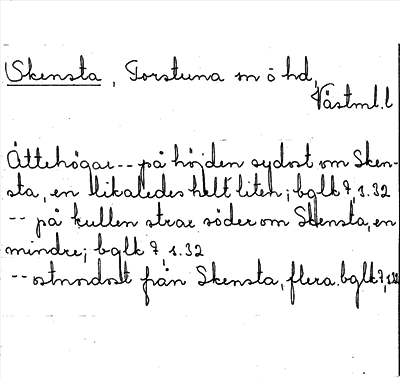 Skensta, Torstuna sn ö hd,
Västml.l
Ättehögar -- på höjden sydost om Sken-
sta, en likaledes helt liten; bglk 7, s. 32
-- på kullen strax söder om Skensta, en
mindre; bglk 7, s. 32
-- ostnordost från Skensta, flera. bglk 7, s.